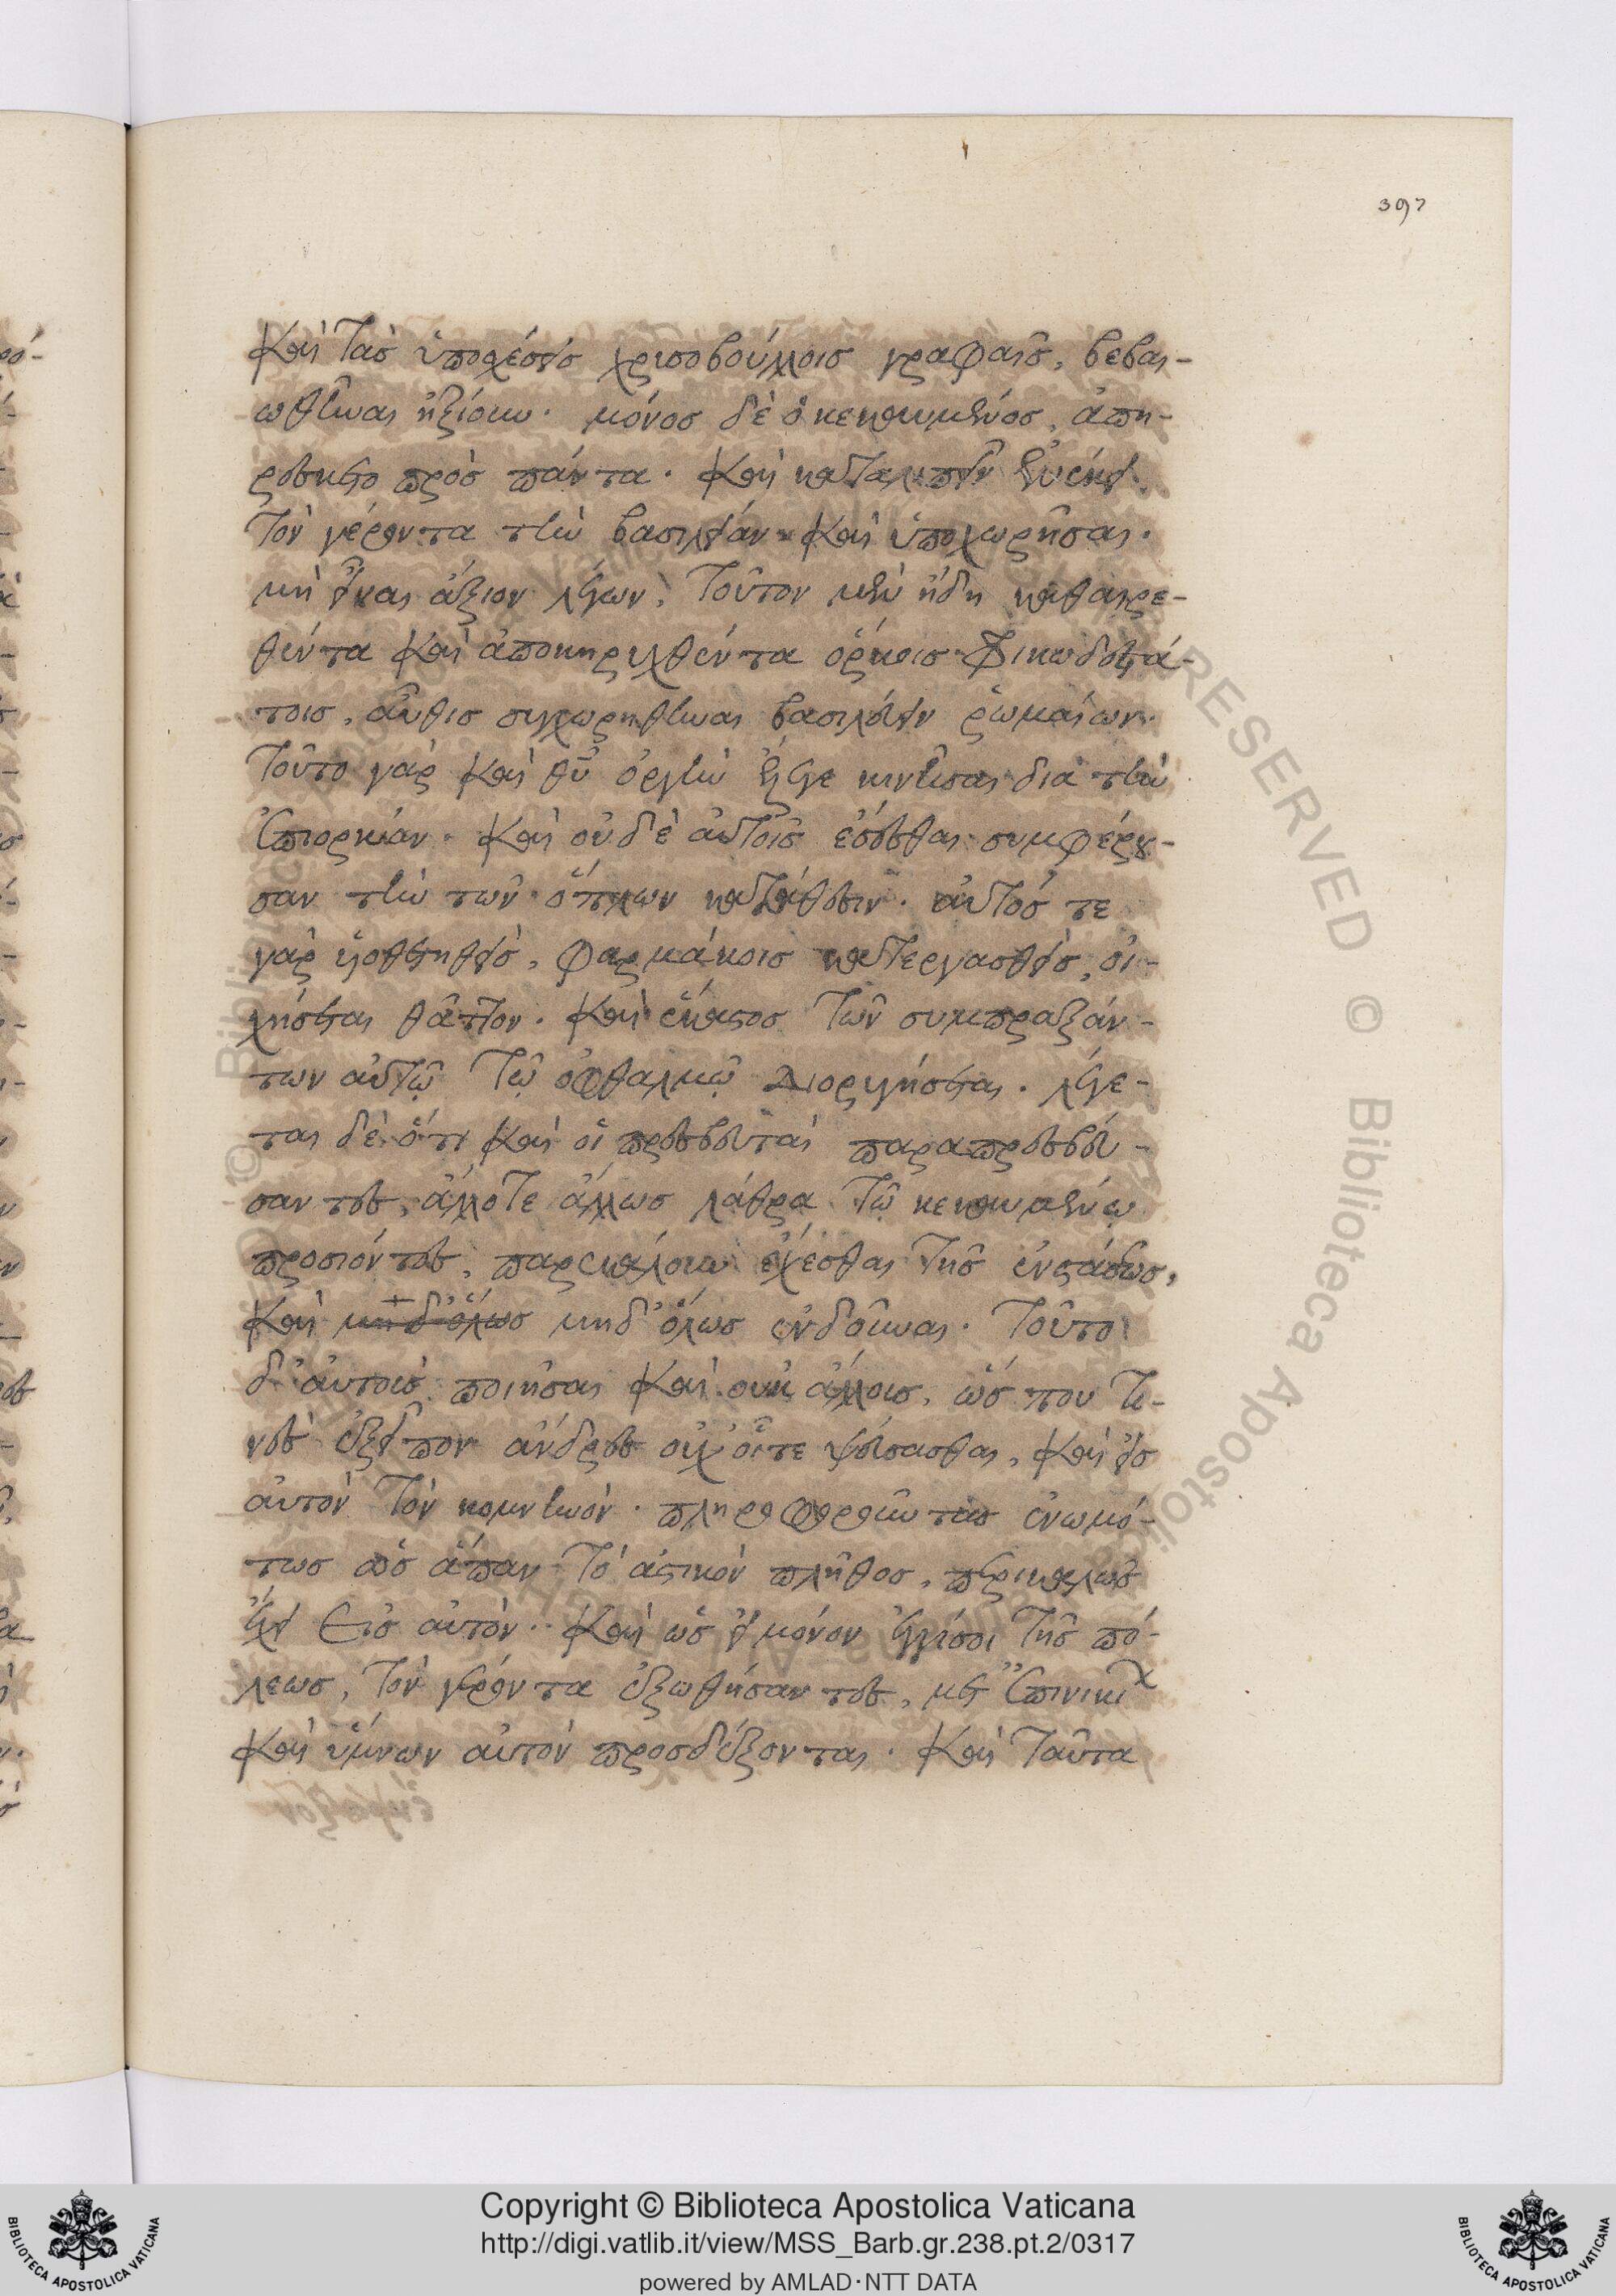 397
Καὶ τὰς ὑποσχέσεις χρισοβούλλοις γραφαῖς, βεβαι-
ωθῆναι ἠξίουν. μόνος δὲ ὁ κεκαυμένος, ἀπη-
ρέσκετο πρὸς πάντα. Καὶ καταλιπεῖν ἐνεκει
τὸν γέροντα τὴν βασιλείαν καὶ ὑποχωρῆσαι.
μὴ εἶναι ἄξιον λέγων, τοῦτον μὲν ἤδη καθαιρε-
θέντα καὶ ἀποκηρυχθέντα ὅρκοις φρικωδεστά-
τοις, αὖθις συγχωρηθῆναι βασιλεύειν ῥωμαίων.
Τοῦτο γὰρ καὶ θῦ ὀργὴν ἔλεγε κινῆσαι διὰ τὴν
ἐπιορκίαν. Καὶ οὐδὲ αὐτοῖς ἔσεσθαι συμφέρου-
σαν τὴν τῶν ὅπλων κατάθεσιν. αὐτός τε
γὰρ ἐκθετηθεὶς, φαρμάκοις κατεργασθεὶς, οἰ-
χήσεται θᾶττον. Καὶ ἕκαστος τῶν συμπραξάν-
των αὐτῷ τῷ ὀφθαλμῷ διορυγήσεται. λέγε-
ται δὲ ὅτι καὶ οἱ πρέσβευταὶ παραπρεσβεύ-
σαντες, ἄλλοτε ἄλλως λάθρα τῷ κεκαυμένῳ
προσιόντες, παρεκάλουν ἔχεσθαι τῆς ἐνστάσεως,
Καὶ μηδ' ὅλως μηδ' ὅλως ἐνδοῦναι. Τοῦτο
δ' αὐτοὶς ποιῆσαι καὶ οὐκ ἄλλοις, ὥς που τι-
νὲς ἐξεῖπον ἄνδρες οὐχ' οἷοί τε ψεύσασθαι, καὶ εἰς
αὐτὸν τὸν κομνηνὸν. πληροφοροῦντας ἐνωμό-
τως ὡς ἅπαν τὸ ἀστικὸν πλῆθος, περικαλῶς
ἔχει εἰς αὐτὸν. Καὶ ὡς εἰ μόνον ἐγγίσοι τῆς πό-
λεως, τὸν γέροντα ἐξωθήσαντες, μετ' ἐπινικί
Καὶ ὕμνων αὐτὸν προσδέξονται. Καὶ ταῦτα
Copyright © Biblioteca Apostolica Vaticana
http://digi.vatlib.it/view/MSS_Barb.gr.238.pt.2/0317
powered by AMLAD·NTT DATA